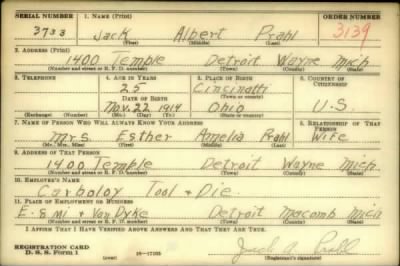 SERIAL NUMBER 1. NAME (Print) ORDER NUMBER
3733 Jack Albert Prahl 3139
(First) (Middle) (Last)
2. ADDRESS (Print)
1400 Temple Detroit Wayne Mich
(Number and street or R. F. D. number) (Town) (County) (State)
3. TELEPHONE 4. AGE IN YEARS 5. PLACE OF BIRTH 6. COUNTRY OF CITIZENSHIP
25 Cincinatti
DATE OF BIRTH (Town or county)
Nov. 22 1914 Ohio U.S.
(Exchange) (Number) (Mo.) (Day) (Yr.) (State or country)
7. NAME OF PERSON WHO WILL ALWAYS KNOW YOUR ADDRESS 8. RELATIONSHIP OF THAT PERSON
Mrs. Esther Amelia Prahl Wife
(Mr., Mrs., Miss) (First) (Middle) (Last)
9. ADDRESS OF THAT PERSON
1400 Temple Detroit Wayne Mich.
(Number and street or R. F. D. number) (Town) (County) (State)
10. EMPLOYER'S NAME
Carboloy Tool + Die
11. PLACE OF EMPLOYMENT OR BUSINESS
E. 8 mi + Van Dyke Detroit Macomb Mich
(Number and street or R. F. D. number) (Town) (County) (State)
I AFFIRM THAT I HAVE VERIFIED ABOVE ANSWERS AND THAT THEY ARE TRUE.
REGISTRATION CARD
D. S. S. Form 1 (over) 16—17105 (Registrant's signature)